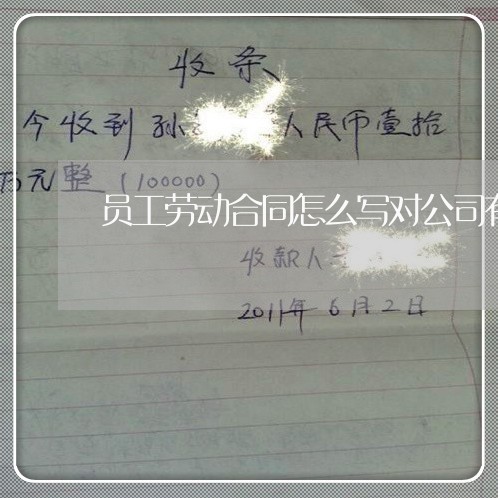 收条
今收到孙 人民币壹拾
万元整（100000）
员工劳动合同怎么写对公司有
收款人
2011年6月2日